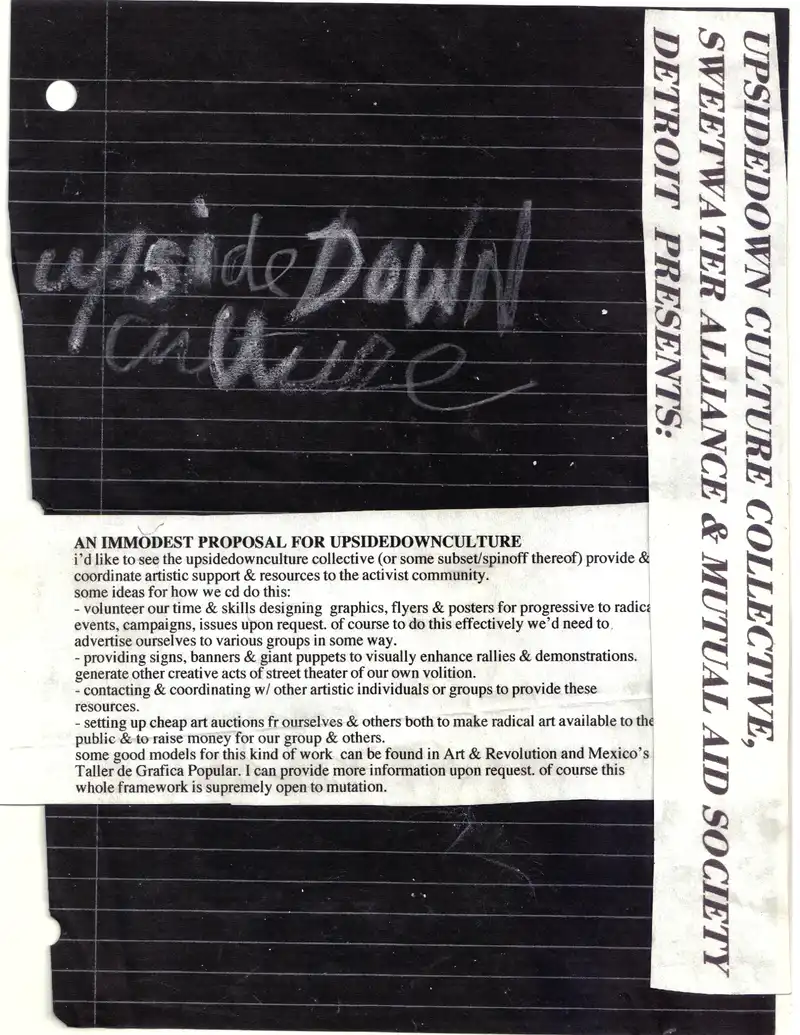 UPSIDEDOWN CULTURE COLLECTIVE,
SWEETWATER ALLIANCE & MUTUAL AID SOCIETY
DETROIT PRESENTS:
upsideDOWN
culture
AN IMMODEST PROPOSAL FOR UPSIDEDOWNCULTURE
i'd like to see the upsidedownculture collective (or some subset/spinoff thereof) provide &
coordinate artistic support & resources to the activist community.
some ideas for how we cd do this:
- volunteer our time & skills designing graphics, flyers & posters for progressive to radica
events, campaigns, issues upon request. of course to do this effectively we'd need to
advertise ourselves to various groups in some way.
- providing signs, banners & giant puppets to visually enhance rallies & demonstrations.
generate other creative acts of street theater of our own volition.
- contacting & coordinating w/ other artistic individuals or groups to provide these
resources.
- setting up cheap art auctions fr ourselves & others both to make radical art available to the
public & to raise money for our group & others.
some good models for this kind of work can be found in Art & Revolution and Mexico's
Taller de Grafica Popular. I can provide more information upon request. of course this
whole framework is supremely open to mutation.